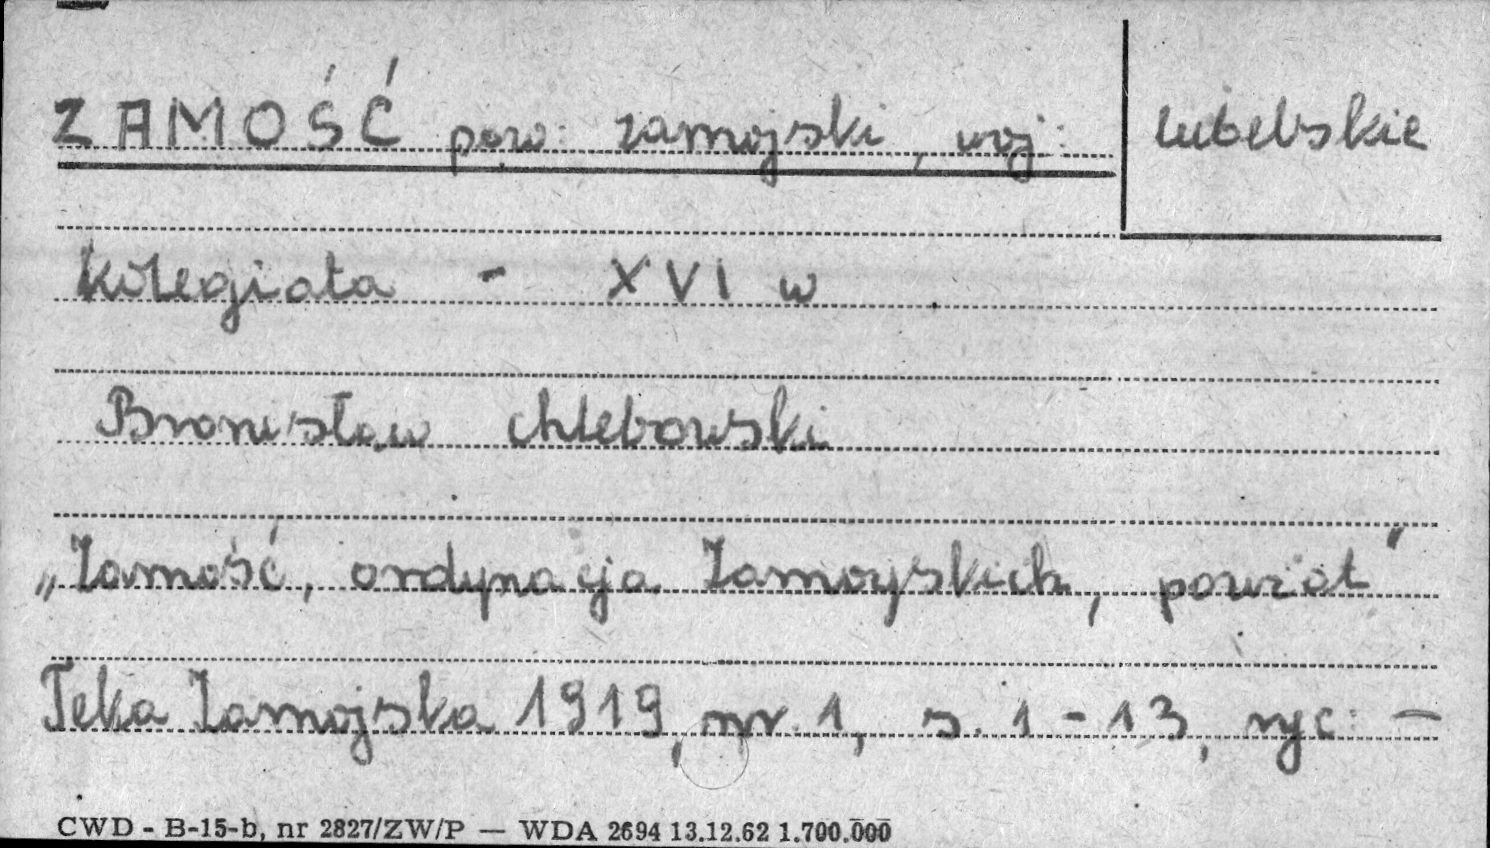 ZAMOŚĆ pow: zamojski, woj: lubelskie
Kolegiata - XVI w.
Bronisław Chlebowski
„Zamość, ordynacja Zamoyskich, powiat"
Teka Zamojska 1919, nr. 1, s. 1-13, ryc: —
CWD - B-15-b, nr 2827/ZW/P — WDA 2694 13.12.62 1.700.000